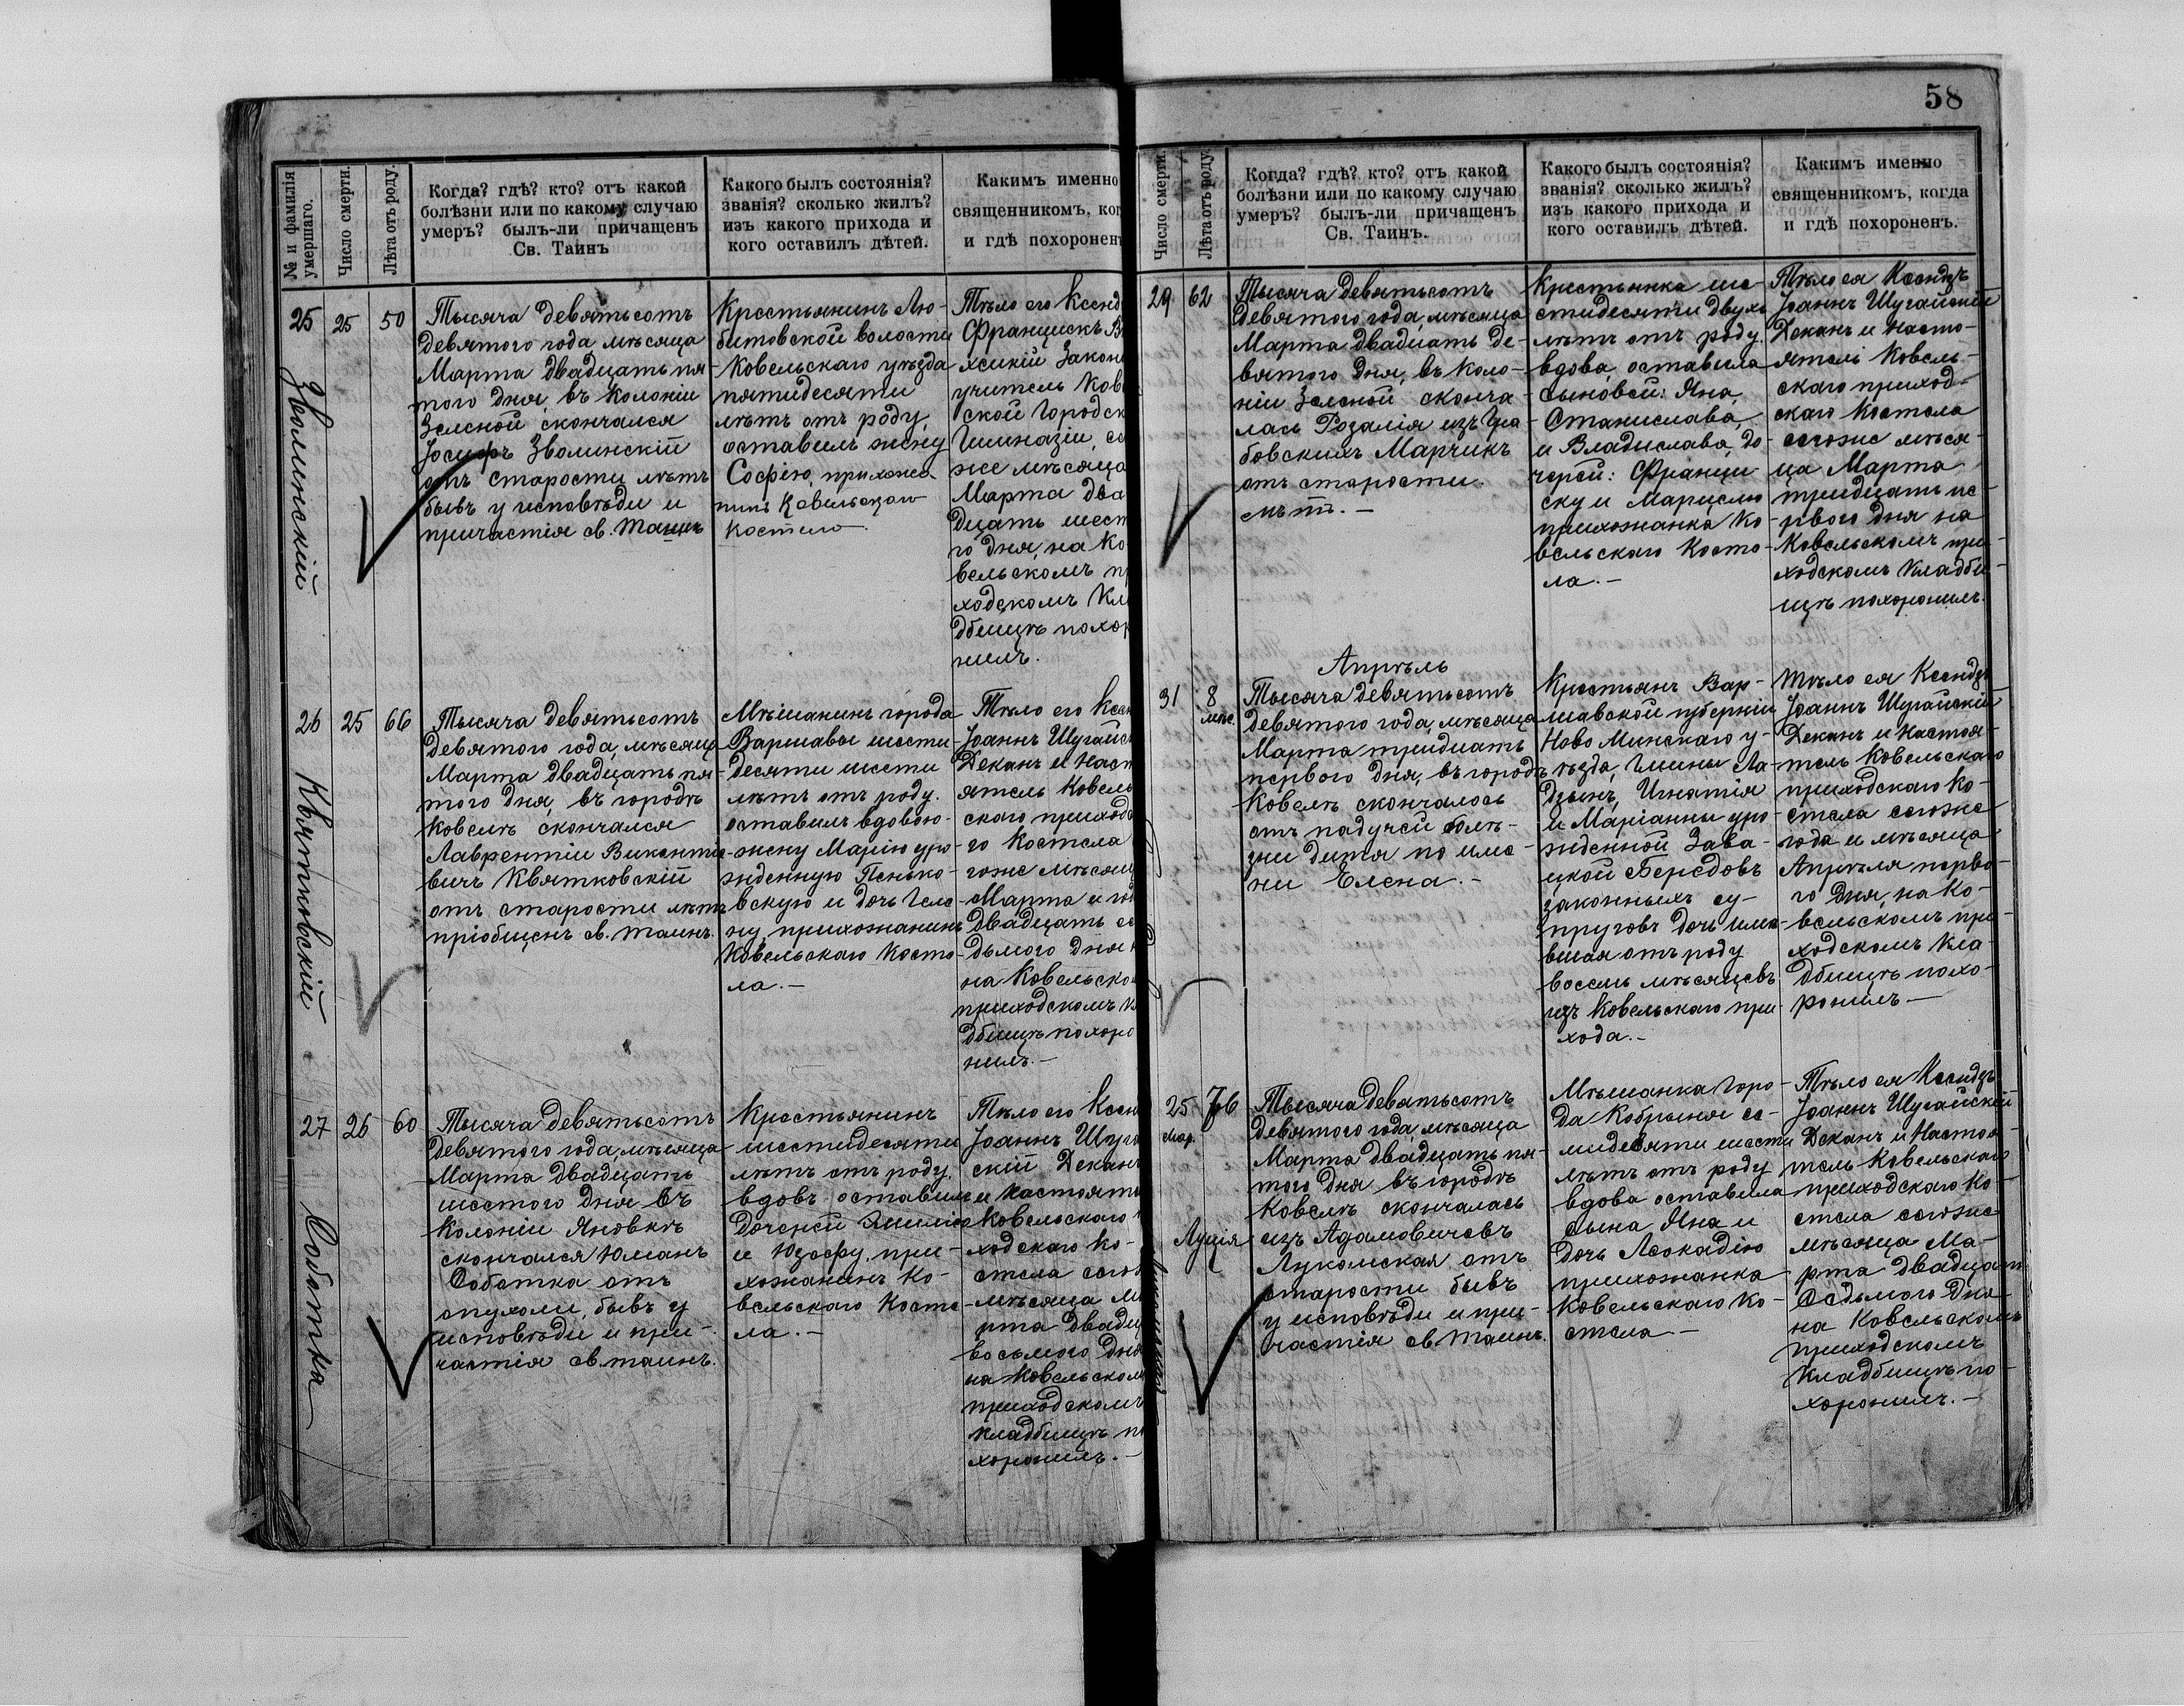 58
№ и фамилія
умершаго.
Число смерти.
Лѣта отъ роду.
Когда? гдѣ? кто? отъ какой
болѣзни или по какому случаю
умеръ? былъ-ли причащенъ
Св. Таинъ
Какого былъ состоянія?
званія? сколько жилъ?
изъ какого прихода и
кого оставилъ дѣтей.
Каким­ъ именно
священникомъ, ког
и гдѣ похоронен
25
Зволинскій
25
50
Тысяча девятьсотъ
девятого года мѣсяца
Марта двадцать пя-
того дня, въ колоніи
Зеленой скончался
Іосифъ Зволинскій
отъ старости лѣтъ
бывъ у исповѣди и
причастія св. Таинъ
Крестьянинъ Лю-
битовской волости
Ковельскаго уѣзда
пятидесяти
лѣтъ отъ роду,
оставилъ жену
Софію, прихожа-
нинъ Ковельскаго
костела
Тѣло его Ксенд
Францискъ
жскій Закон
учитель Ков
ской Городск
Гимназіи, се
же мѣсяца
Марта два
дцать шест
го дня, на Ко
вельскомъ п
ходскомъ Кл
дбищѣ похор
нилъ.
26
Квятковскій
25
66
Тысяча девятьсотъ
девятого года, мѣсяца
Марта двадцать пя-
того дня, въ городѣ
Ковелѣ скончался
Лаврентіи Викентіе-
вичъ Квятковскій
отъ старости лѣтъ
пріобщенъ св. таинъ.
Мѣщанинъ города
Варшавы шести-
десяти шести
лѣтъ отъ роду.
оставилъ вдовою
жену Марію уро-
жденную Пенько-
вскую и дочь Геле-
ну, прихожанинъ
Ковельскаго Косте-
ла.-
Тѣло его Ксен
Іоаннъ Шугайс
Деканъ и Наст
ятель Ковель
скаго приход
го Костела
гоже мѣсяц
Марта и год
двадцать се
дьмого дня
на Ковельско
приходскомъ к
дбищѣ похоро
нилъ.-
27
Соботка
26
60
Тысяча девятьсотъ
девятого года, мѣсяца
Марта двадцать
шестого дня въ
Колоніи Яновкѣ
скончался Юліанъ
Соботка отъ
опухоли, бывъ у
исповѣди и при-
частія св. таинъ.
Крестьянинъ
шестидесяти
лѣтъ отъ роду.
вдовъ оставилъ
дочерей Эмилію
и Юзефу, при-
хожанинъ Ко-
вельскаго Косте-
ла.-
Тѣло его Ксен
Іоаннъ Шуга
скій Деканъ
и Настояте
Ковельскаго
ходскаго Ко-
стела сего
мѣсяца Ма
рта двадц
восьмого дня
на Ковельском
приходскомъ
кладбищѣ п
хоронилъ.-
Число смерти.
Лѣта отъ роду.
Когда? гдѣ? кто? отъ какой
болѣзни или по какому случаю
умеръ? былъ-ли причащенъ
Св. Таинъ.
Какого былъ состоянія?
званія? сколько жилъ?
изъ какого прихода и
кого оставилъ дѣтей.
Какимъ именно
священникомъ, когда
и гдѣ похороненъ.
29
62
Тысяча девятьсотъ
девятого года, мѣсяца
Марта двадцать де-
вятого дня, въ коло-
ніи Зеленой сконча
лась Розалія изъ Гра
бовскихъ Марчикъ
отъ старости
лѣтъ.-
Крестьянка ше-
стидесяти двухъ
лѣтъ отъ роду.
вдова, оставила
сыновей: Яна,
Станислава,
и Владислава, до-
черей: Францы
ску и Марцелю
прихожанка Ко-
вельскаго Косте-
ла.-
Тѣло ея Ксендзъ
Іоаннъ Шугайскій
Деканъ и Насто-
ятель Ковель-
скаго приход-
скаго Костела
сегоже мѣся-
ца Марта
тридцать пе-
рвого дня на
Ковельскомъ при-
ходскомъ Кладби-
щѣ похоронилъ.
Апрѣль
31
8
мѣс.
Тысяча девятьсотъ
девятого года, мѣсяца
Марта тридцать
первого дня, въ городѣ
Ковелѣ скончалось
отъ падучей болѣ-
зни дитя по име-
ни Елена.-
Крестьянъ Вар-
шавской губерніи
Ново Минскаго у-
ѣзда, Гмины Ла-
дзынъ, Игнатія
и Маріанны уро-
жденной Зава-
цкой Бередовъ
законныхъ су-
пруговъ дочь имѣ-
вшая отъ роду
восемь мѣсяцевъ
изъ Ковельскаго при-
хода.-
Тѣло ея Ксендзъ
Іоаннъ Шугайскій
Деканъ и Настоя-
тель Ковельскаго
приходскаго Ко-
стела сегоже
года и мѣсяца
Апрѣля перво-
го дня, на Ко-
вельскомъ при-
ходскомъ кла-
дбищѣ похо-
ронилъ-
25
Мар.
76
Луція
Тысяча девятьсотъ
девятого года, мѣсяца
Марта двадцать пя-
того дня въ городѣ
Ковелѣ скончалась
изъ Адамовичевъ
Лукомская отъ
старости бывъ
у исповѣди и при-
частія св. таинъ.
Мѣщанка горо-
да Кобрыня се-
мидесяти шести
лѣтъ отъ роду
вдова оставила
сына Яна и
дочь Леокадію
прихожанка
Ковельскаго Ко-
стела-
Тѣло ея Ксендзъ
Іоаннъ Шугайскій
Деканъ и Настоя-
тель Ковельскаго
приходскаго Ко-
стела сегоже
мѣсяца Ма-
рта двадцать
Седьмого дня
на Ковельскомъ
приходскомъ
Кладбищѣ по-
хоронилъ.-